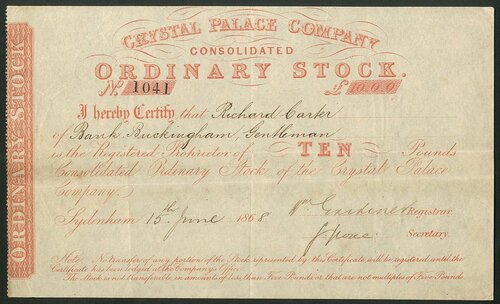 CRYSTAL PALACE COMPANY
CONSOLIDATED
ORDINARY STOCK.
No. 1041 £10.0.0
I hereby Certify that Richard Carter
of Bank Buckingham, Gentleman
is the Registered Proprietor of TEN Pounds
Consolidated Ordinary Stock of the Crystal Palace
Company.
Sydenham 15th June 1868 Wm Gardiner Registrar.
Secretary.
Note: No transfer of any portion of the Stock represented by this Certificate will be registered until the
Certificate has been lodged at the Company's Office.
The Stock is not transferable in amounts of less than Five Pounds or that are not multiples of Five Pounds.
ORDINARY STOCK